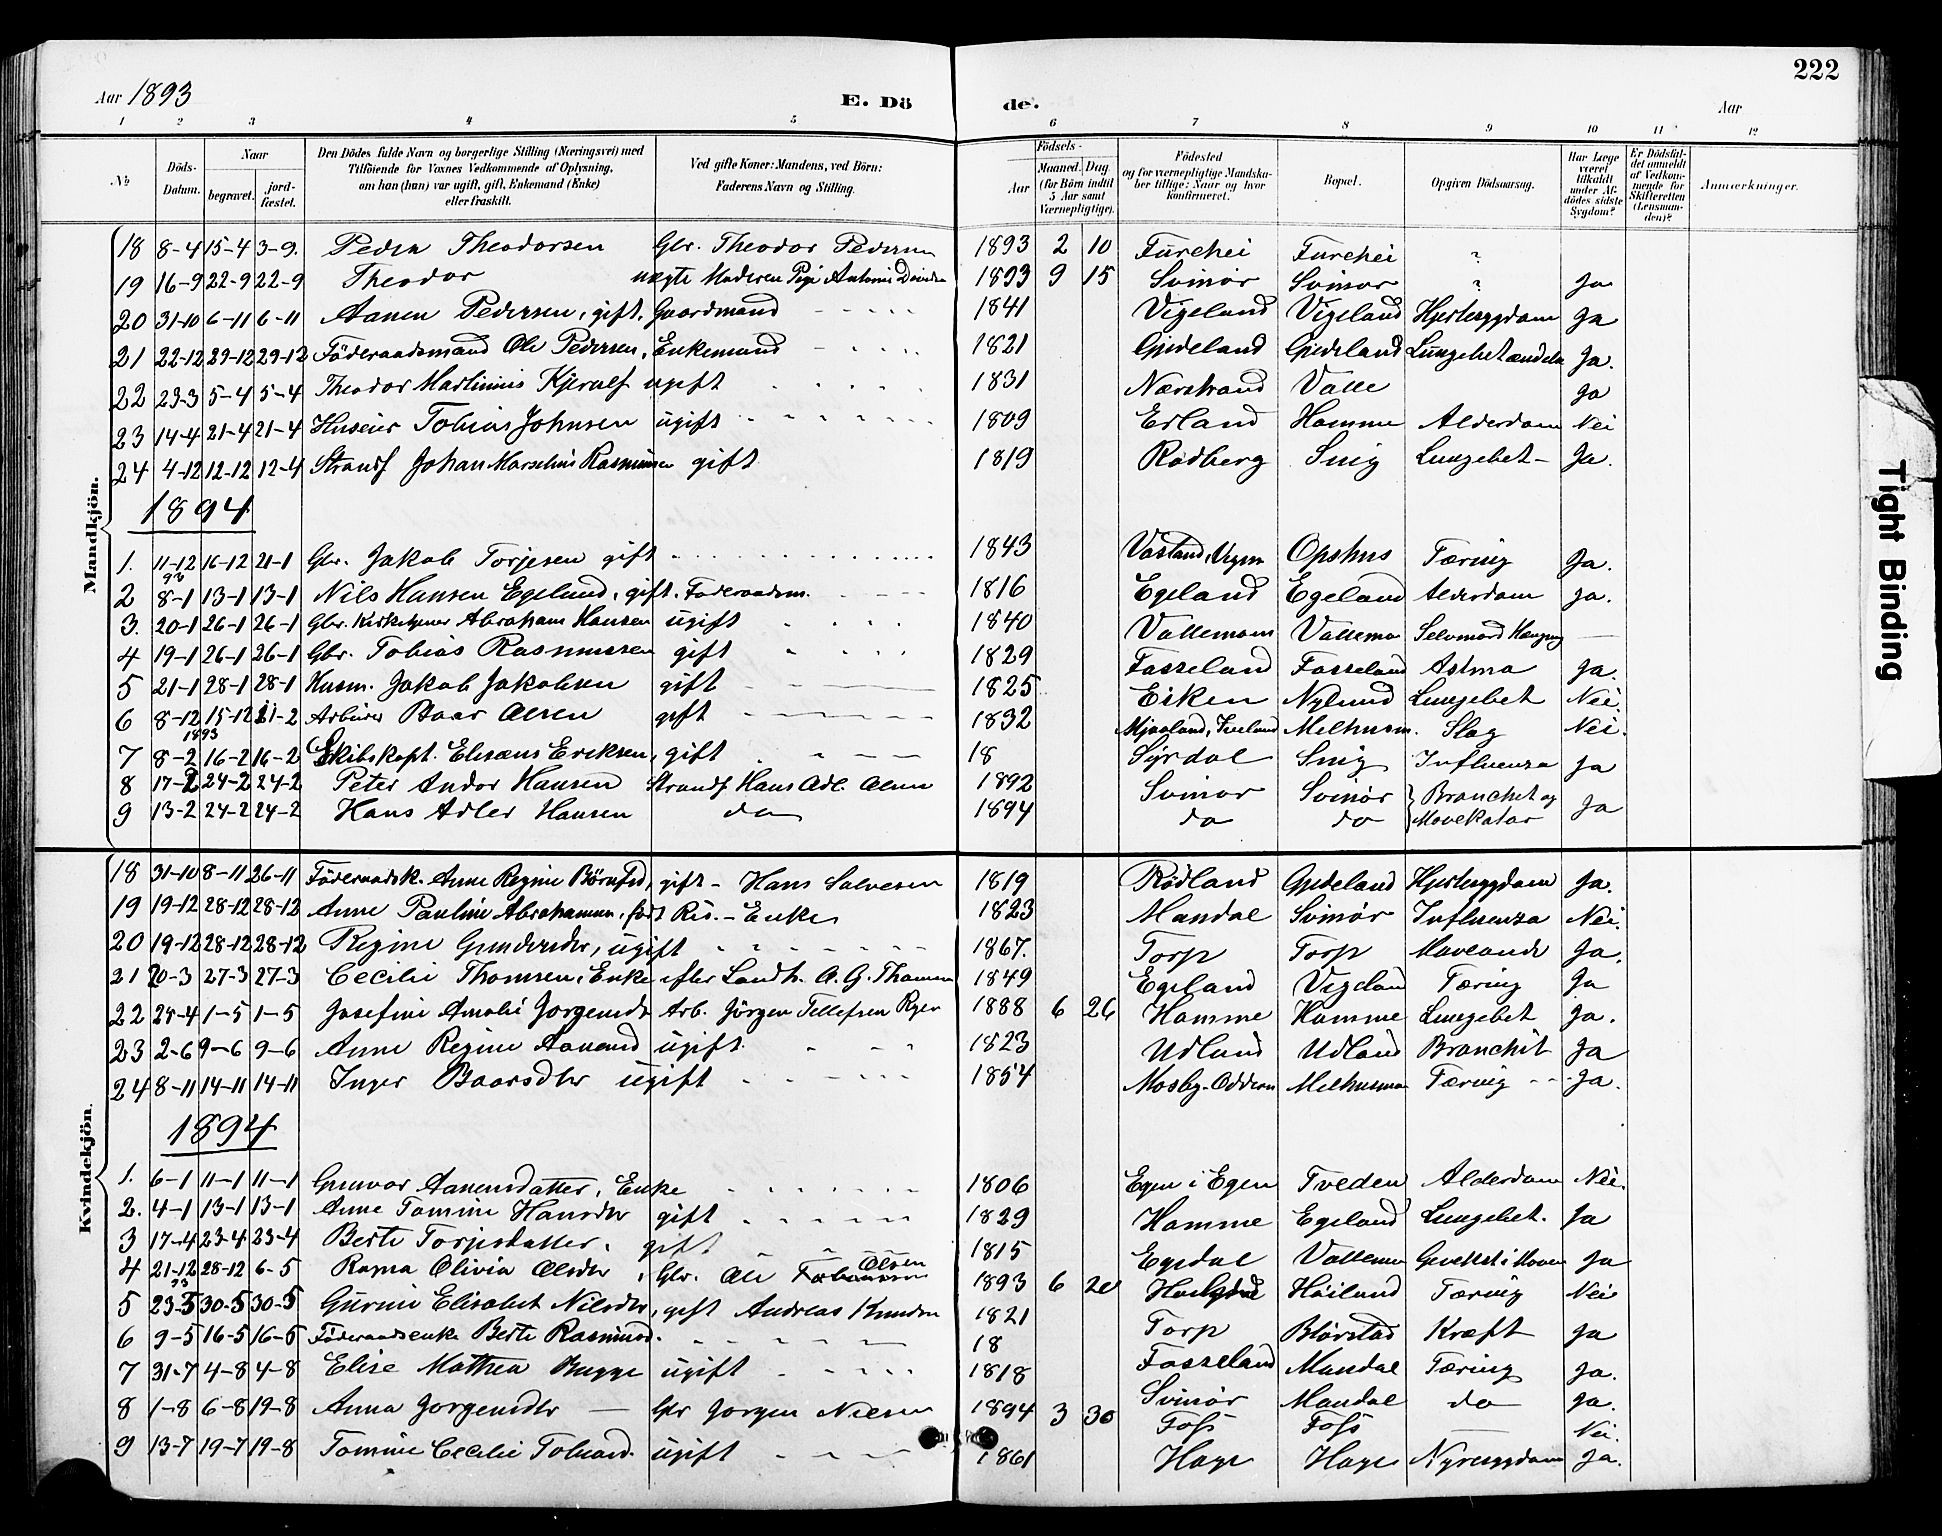 222
Aar 1893 E. Dö de. Aar
1 2 3 4 5 6 7 8 9 10 11 12
№ Döds-Datum. Naar begravet. jord-fæstet. Den Dödes fulde Navn og borgerlige Stilling (Næringsvei) med Tilföiende for Voxnes Vedkommende af Oplysning, om han (hun) var ugift, gift, Enkemand (Enke) eller fraskilt. Ved gifte Koner: Mandens, ved Börn: Faderens Navn og Stilling. Födsels- Aar Maaned. Dag. (for Börn indtil 5 Aar samt Værnepligtige). Födested og for værnepligtige Mandskaber tillige: Naar og hvor konfirmeret. Bopæl. Opgiven Dödsaarsag. Har Læge været tilkaldt under Afdödes sidste Sygdom? Er Dödsfaldet anmeldt af Vedkommende for Skifteretten (Lensmanden)? Anmærkninger.
Mandkjön.
18 8-4 15-4 3-9. Peder Theodorsen Gbr. Theodor Pedersen 1893 2 10 Furehei Furehei "
19 16-9 22-9 22-9 Theodor uægte Moderen 1893 9 15 Svinör Svinör " Ja
20 31-10 6-11 6-11 Aanen Pedersen, gift, Gaardmand 1841 Vigeland Vigeland Hjertesygdom Ja
21 22-12 29-12 29-12 Föderaadsmand Ole Pedersen, Enkemand 1821 Gjedeland Gjedeland Lungebetændelse Ja.
22 23-3 5-4 5-4 Theodor Martinius Kjerulf ugift 1831 Nærstrand Valle Ja
23 14-4 21-4 21-4 Huseier Tobias Johnsen ugift 1809 Erland Hamme Alderdom Nei
24 4-12 12-12 12-4 Strandf Johan Marselius Rasmussen gift 1819 Rödberg Snig Lungebet- Ja.
1894
1. 11-12 93 16-12 21-1 Gbr. Jakob Torjesen gift 1843 Opshus Tæring Ja.
2 8-1 13-1 13-1 Nils Hansen Egeland, gift. Föderaadsm. 1816 Egeland Egeland Alderdom Ja.
3. 20-1 26-1 26-1 Gbr. Kirketjener Abraham Hansen ugift 1840 Vallemoen Vallemo Selvmord Hængning —
4 19-1 26-1 26-1 Gbr. Tobias Rasmussen gift 1829 Fasseland Fasseland Astma Ja.
5 21-1 28-1 28-1 Husm. Jakob Jakobsen gift 1825 Eiken Nylund Lungebet Nei.
6 8-12 1893 15-12 21-2 Arbeider Baar Olsen gift 1832 Melhusm. Slag Nei.
7 8-2 16-2 16-2 Skibskapt. Elisæus Eriksen, gift 18 Syrdal Snig Influenza Ja
8 17-2 24-2 24-2 Peter Andor Hansen Strandf Hans Adl. Olsen 1892 Svinör Svinör Bronchit og
9 13-2 24-2 24-2 Hans Adler Hansen do 1894 do do Mavekatar Ja
Kvindekjön.
18 31-10 8-11 26-11 Föderaadsk. Anne Regine gift - Hans Salvesen 1819 Rödland Gjedeland Hjertesygdom Ja.
19 19-12 28-12 28-12 Anne Pauline Abrahamsen, född Ris. - Enke 1823 Mandal Svinör Influenza Nei.
20 19-12 28-12 28-12 Regine Gundersdtr, ugift 1867. Torp Torp Maveonde Ja.
21 20-3 27-3 27-3 Cecilie Thomsen, Enke efter Landh. A. G. Thomsen 1849 Egeland Vigeland Tæring Ja
22 24-4 1-5 1-5 Josefine Amalie Jorgensdtr Arb. Jörgen Tellefsen 1888 6 26 Hamme Hamme Lungebet Ja.
23 2-6 9-6 9-6 Anne Regine Aanensd ugift 1823 Udland Udland Bronchit Ja
24 8-11 14-11 14-11 Inger Baarsdtr ugift 1854 Mosby-Oddern Melhusmo Tæring Ja.
1894
1. 6-1 11-1 11-1 Gunvor Aanensdatter, Enke 1806 Egen i Egen Tveden Alderdom Nei.
2. 4-1 13-1 13-1 Anne Tomine Hansdtr gift 1829 Hamme Egeland Lungebet. Ja
3 17-4 23-4 23-4 Berte Torjesdatter, gift 1815 Egedal Vallemo Ja
4 21-12 93 28-12 6-5 Ragna Olivia Olsdtr, Gbr. Ole Olsen 1893 6 20 Höiland Tæring Nei
5 23-5 30-5 30-5 Gurine Elisabet Nilsdtr, gift Andreas Knudsen 1821 Torp Blörstad Kræft Ja
6 9-5 16-5 16-5 Föderaadsenke Berte Rasmusd. 18
7 31-7 4-8 4-8 Elise Mathea Bugge ugift 1818 Fasseland Mandal Tæring Ja.
8 1-8 6-8 19-8 Anna Jorgensdtr — Gbr Jorgen Nilsen 1894 3 30 Svinör Mandal do Ja.
Foss Foss — Nei.
9 13-7 19-7 19-8 Tomine Cecilie Tobiasd. ugift 1861 Hage Hage Nyresygdom Ja.
Tight Binding